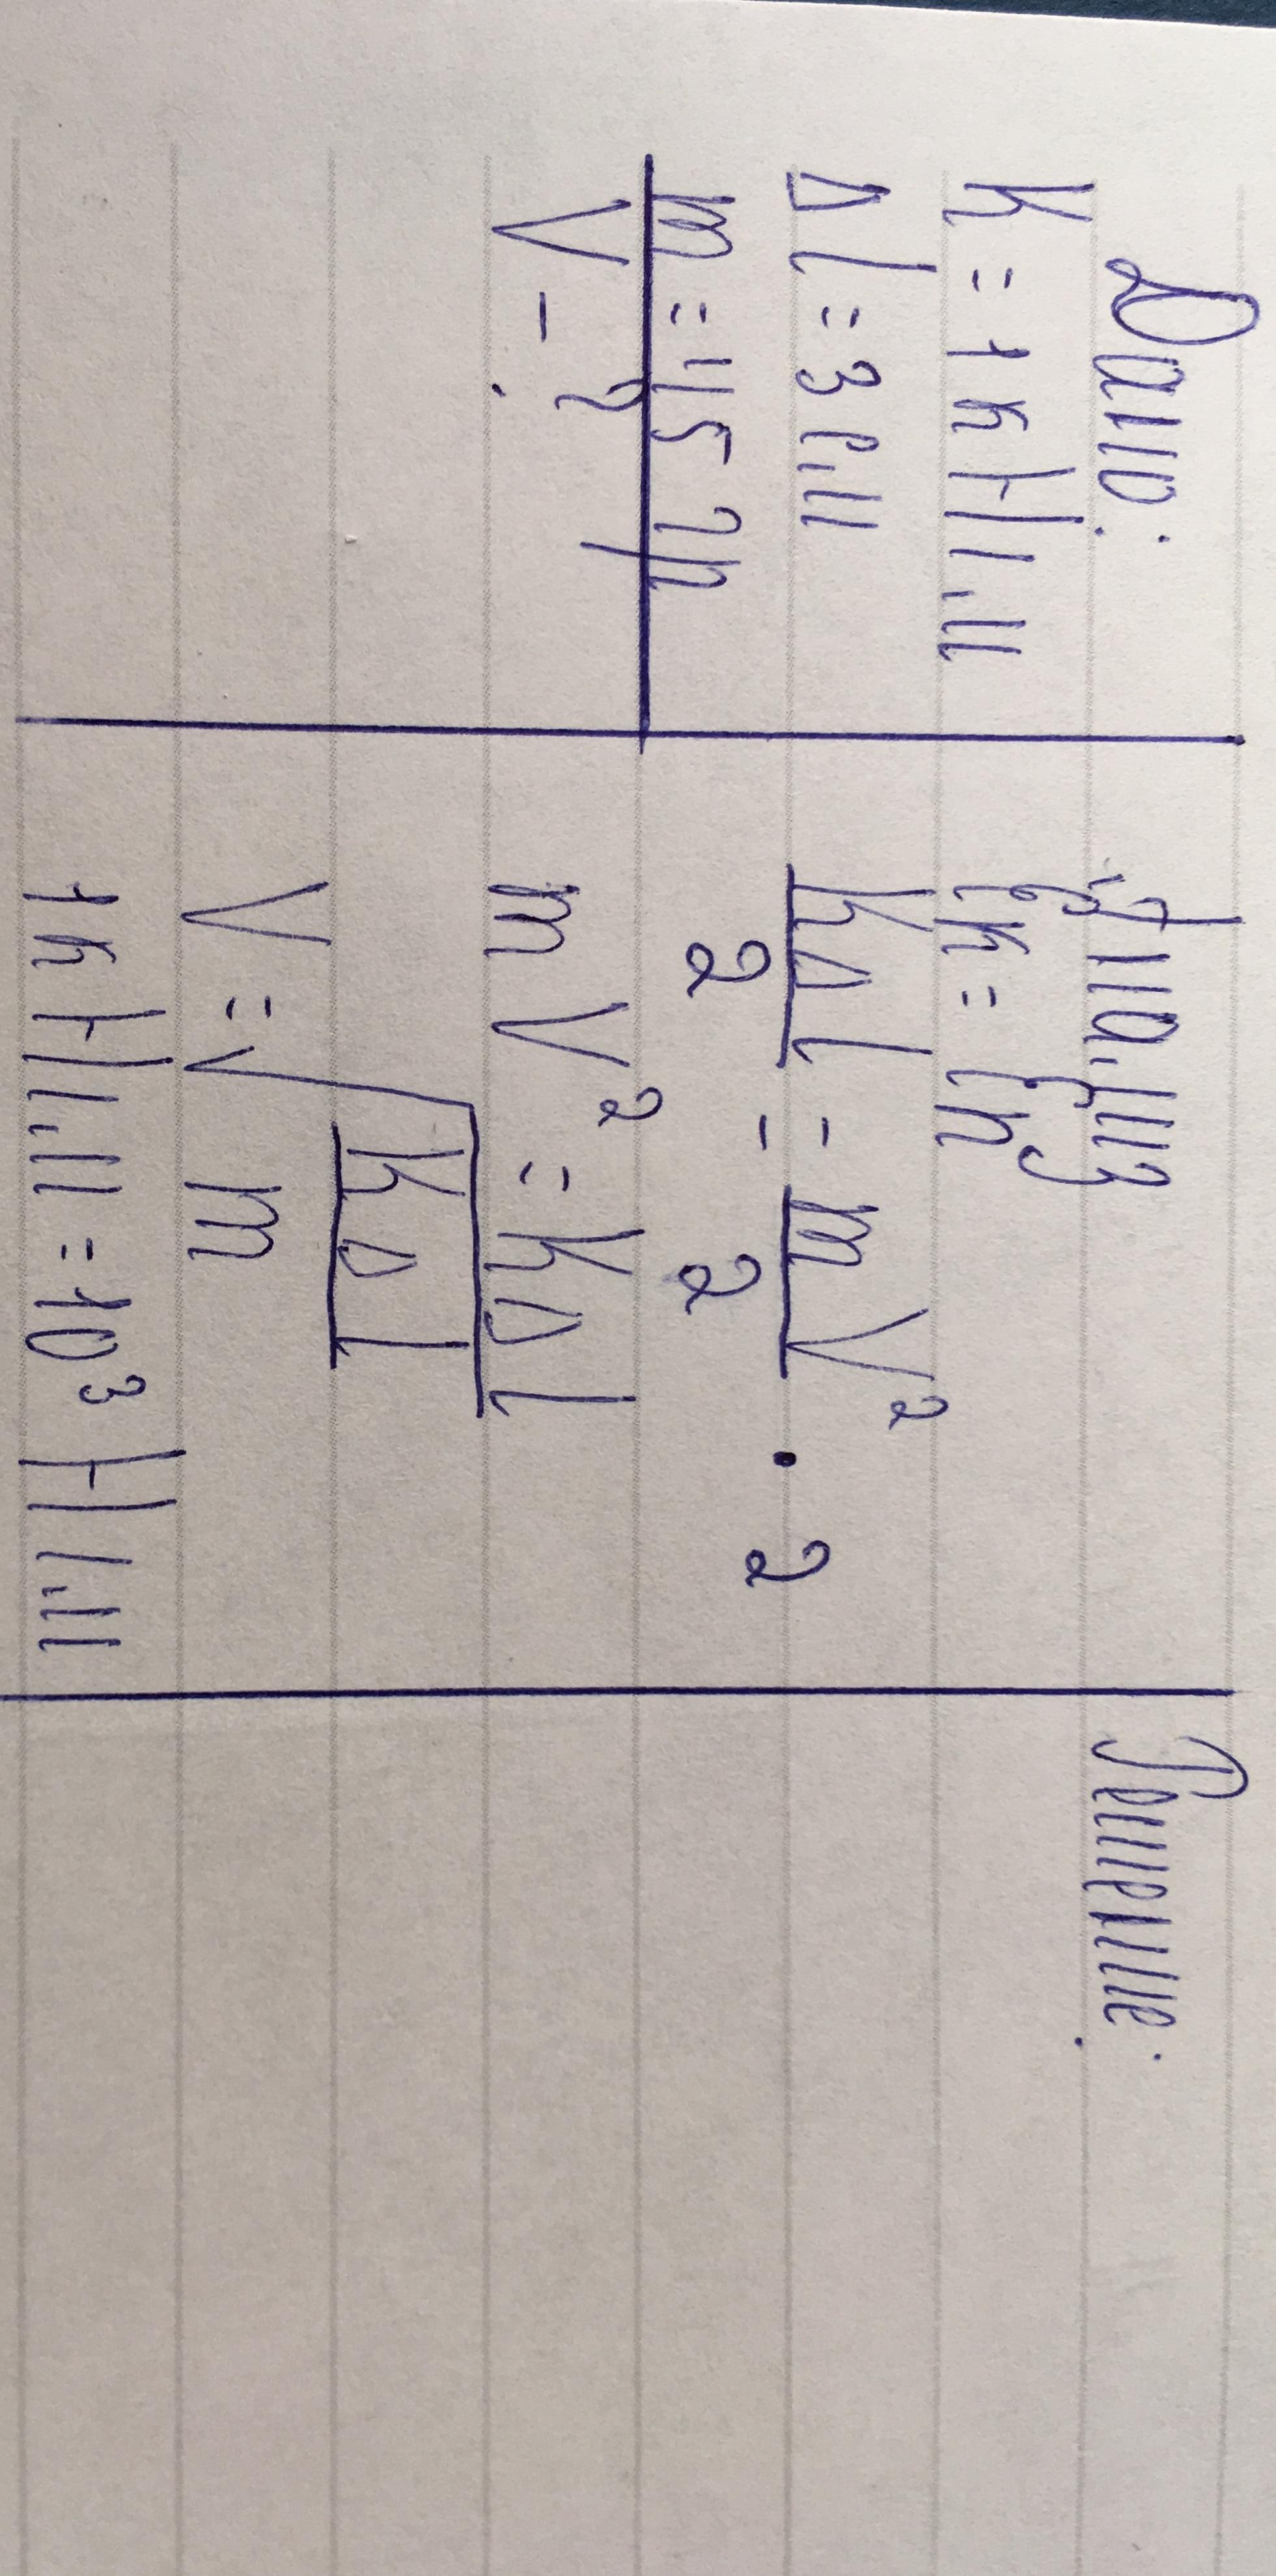 Дано:
k = 1 кН/м
Δl = 3 см
m = 15 гр
V - ?
Анализ
Ек = Еп
kΔl/2 = mV²/2 · 2
mV² = kΔl
V = √kΔl/m
1 кН/м = 10³ Н/м
Решение: